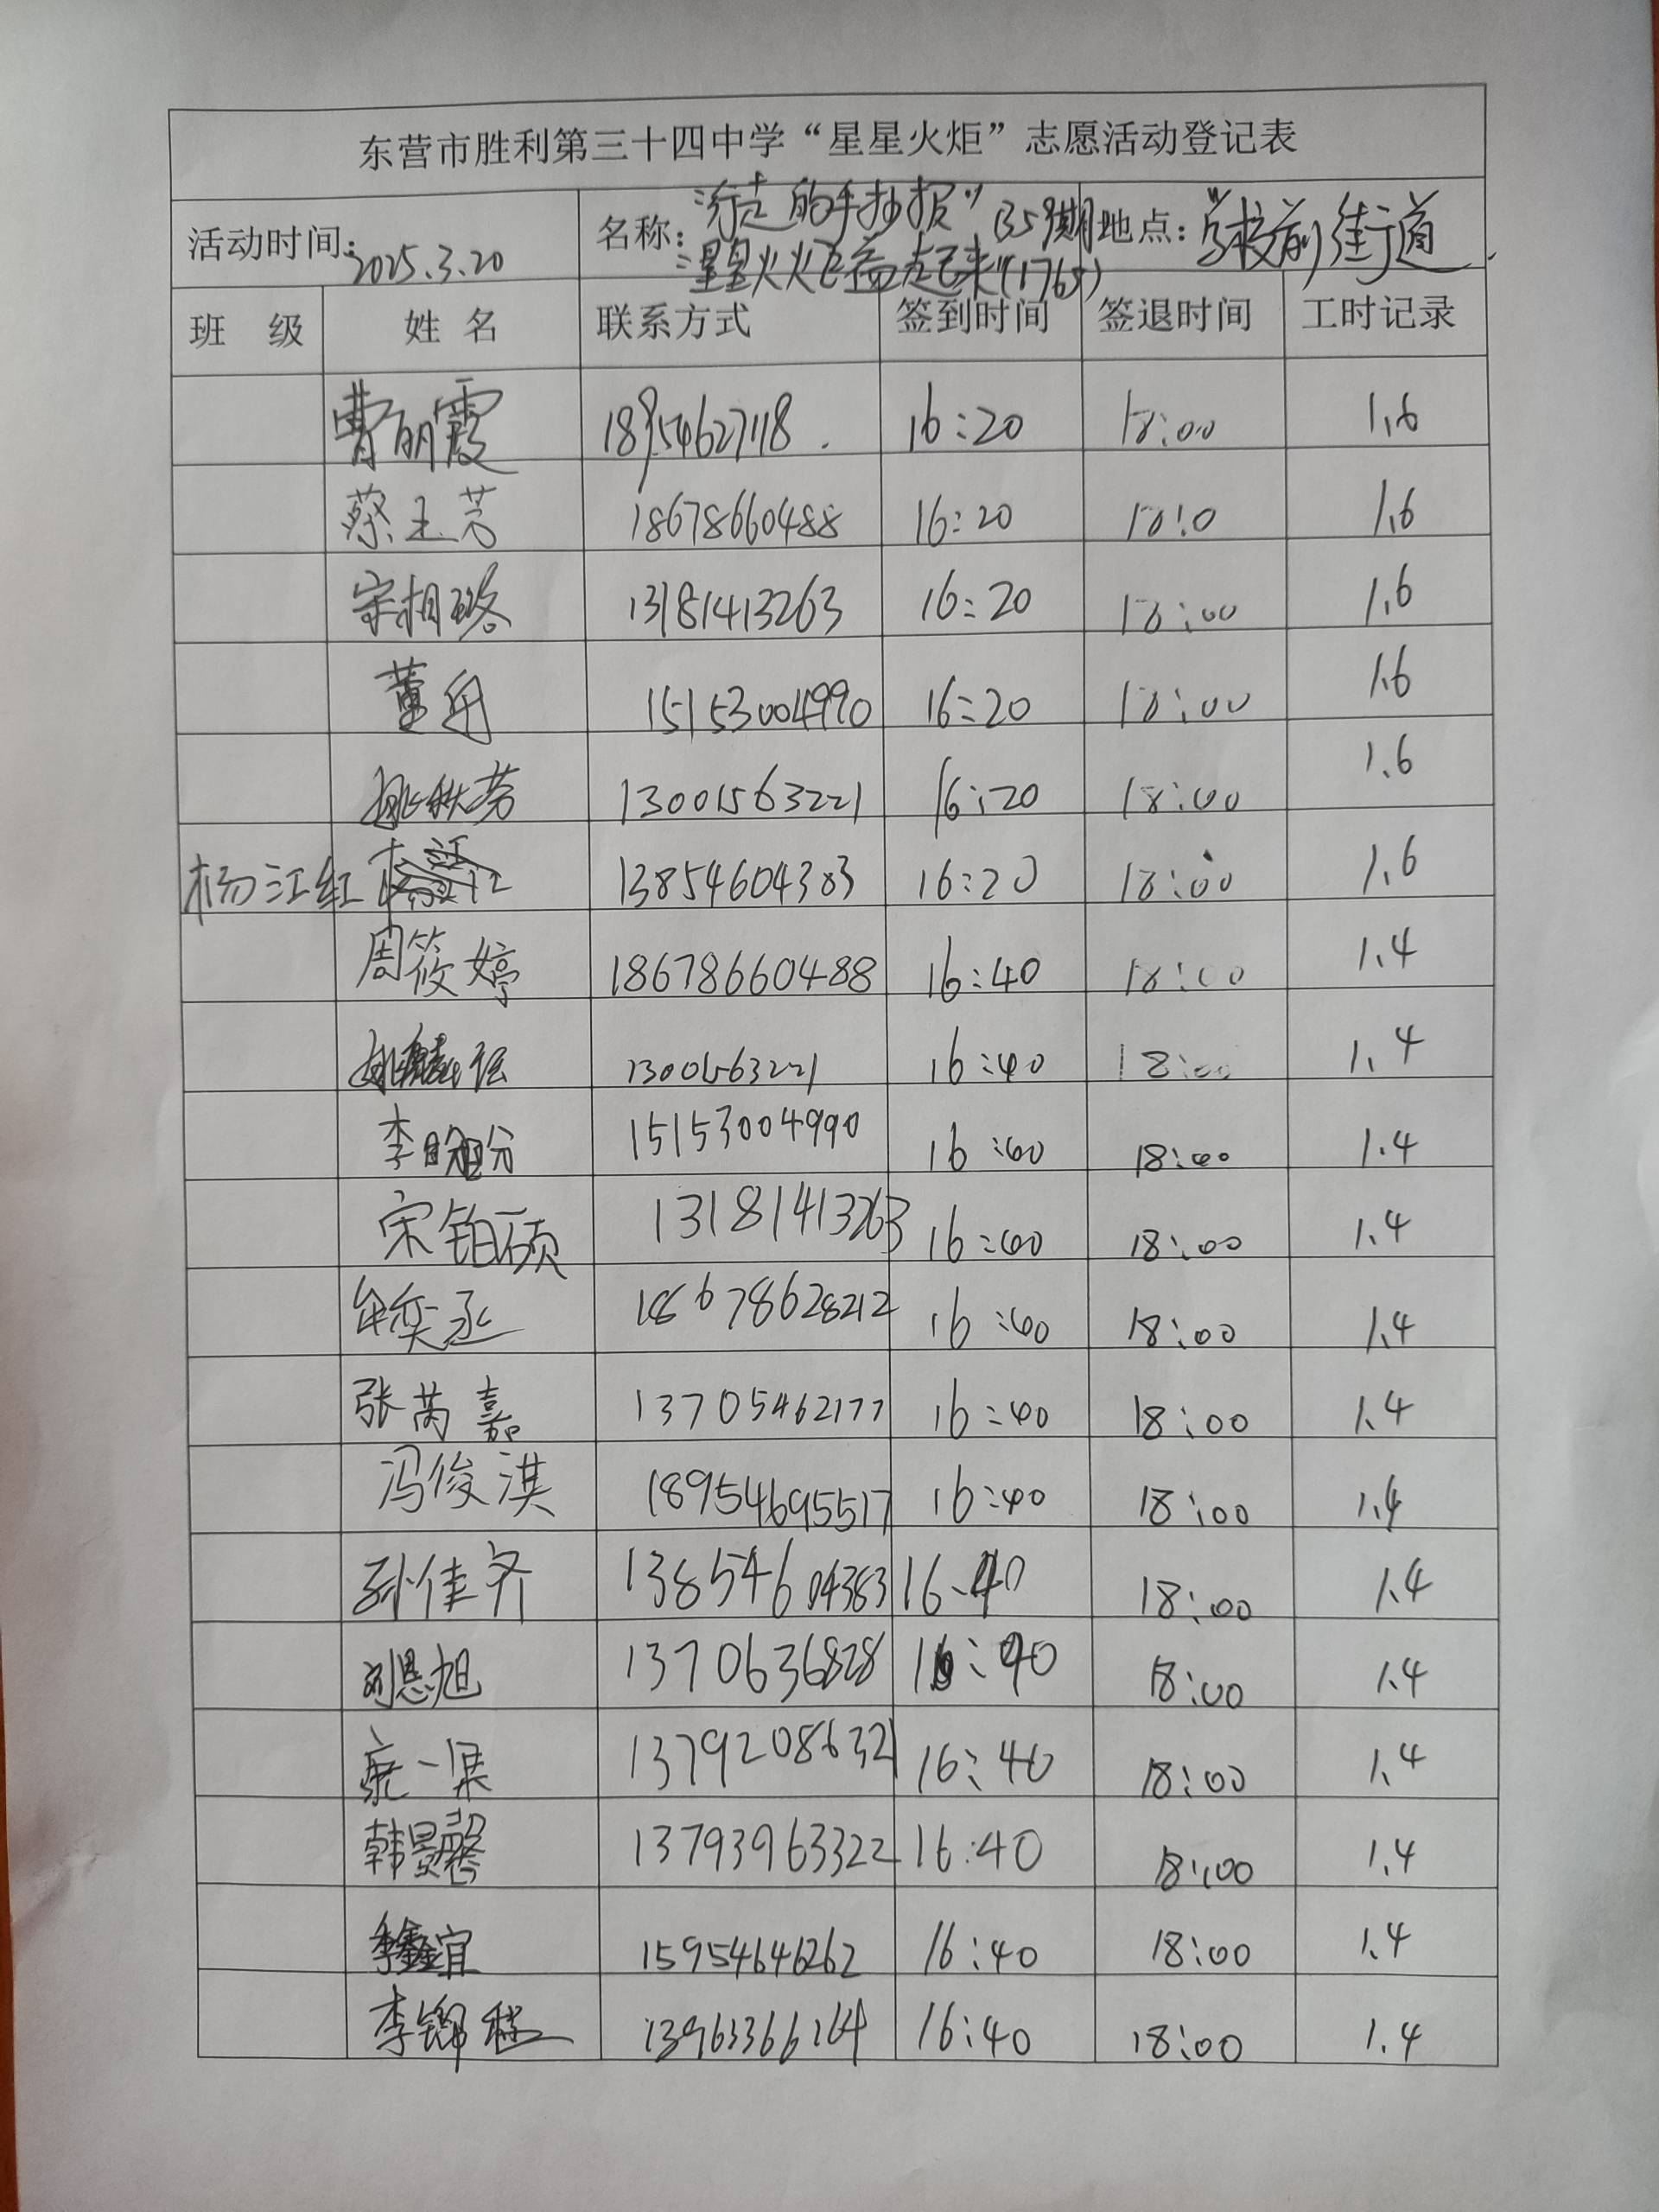 东营市胜利第三十四中学“星星火炬”志愿活动登记表
活动时间: 2025.3.20 名称: "行走的手抄报" (359期 地点: 学校前街道
星星火炬益起来"(1765)
班 级 姓 名 联系方式 签到时间 签退时间 工时记录
曹丽霞 18954627118. 16:20 18:00 1.6
蔡玉芳 18678660488 16:20 18:0 1.6
宋相璐 13181413263 16:20 18:00 1.6
董丹 15153004990 16:20 18:00 1.6
姚秋芳 13001563221 16:20 18:00 1.6
杨江红 13854604383 16:20 18:00 1.6
周筱婷 18678660488 16:40 18:00 1.4
13001563221 16:40 18:00 1.4
李 15153004990 16:40 18:00 1.4
宋铂硕 13181413263 16:40 18:00 1.4
牟奕丞 18678628212 16:40 18:00 1.4
张芮嘉 13705462177 16:40 18:00 1.4
冯俊淇 18954695517 16:40 18:00 1.4
孙佳齐 13854604383 16:40 18:00 1.4
刘恩旭 1370636828 16:40 18:00 1.4
一果 13792086321 16:40 18:00 1.4
韩昊馨 13793963322 16:40 18:00 1.4
李鑫宜 15954646262 16:40 18:00 1.4
李锦程 13963366264 16:40 18:00 1.4